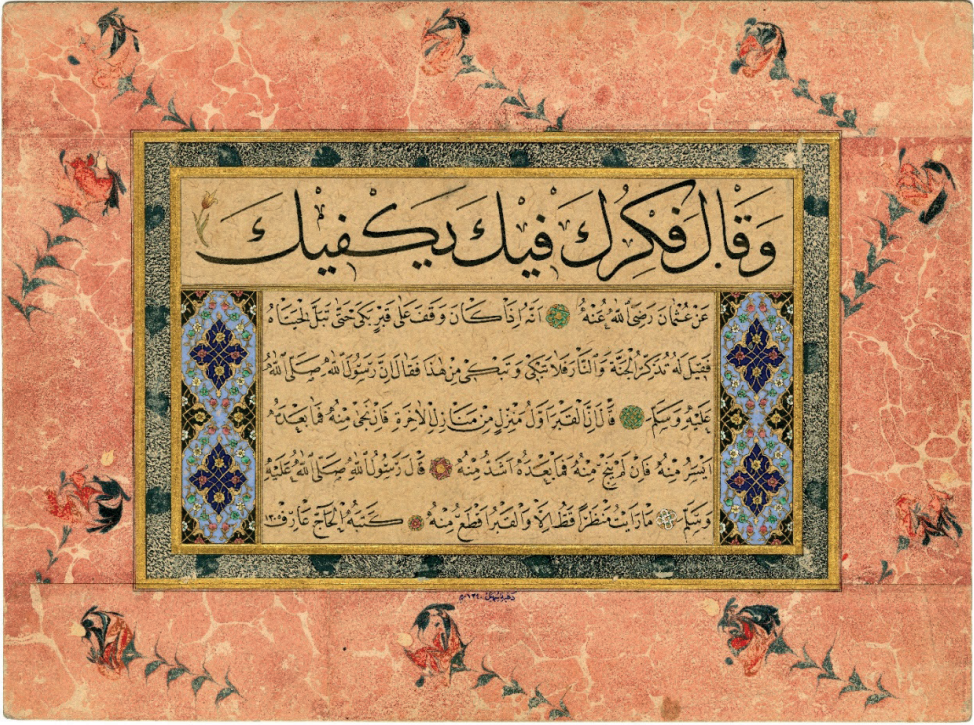 وَقَالَ فَكِرُكَ فِيكَ يَكْفِيكَ
عَنْ عُثْمَانَ رَضِيَ اللّٰهُ عَنْهُ اَنَّهُ اِذَا كَانَ وَقَفَ عَلٰى قَبْرٍ بَكٰى حَتّٰى تَبُلَّ لِحْيَتَاهُ
فَقِيلَ لَهُ تَذْكُرُ الْجَنَّةَ وَالنَّارَ فَلَا تَبْكِى وَتَبْكِى مِنْ هٰذَا فَقَالَ اِنَّ رَسُولَ اللّٰهِ صَلَّى اللّٰهُ
عَلَيْهِ وَسَلَّمَ قَالَ اِنَّ الْقَبْرَ اَوَّلُ مَنْزِلٍ مِنْ مَنَازِلِ الْاٰخِرَةِ فَاِنْ نَجٰى مِنْهُ فَمَا بَعْدَهُ
اَيْسَرُ مِنْهُ فَاِنْ لَمْ يَنْجُ مِنْهُ فَمَا بَعْدَهُ اَشَدُّ مِنْهُ قَالَ رَسُولُ اللّٰهِ صَلَّى اللّٰهُ عَلَيْهِ
وَسَلَّمَ مَا رَاَيْتُ مَنْظَرًا قَطُّ اِلَّا وَالْقَبْرُ اَفْظَعُ مِنْهُ كَتَبَهُ الْحَاجّ عَارِف ١٣٠٥